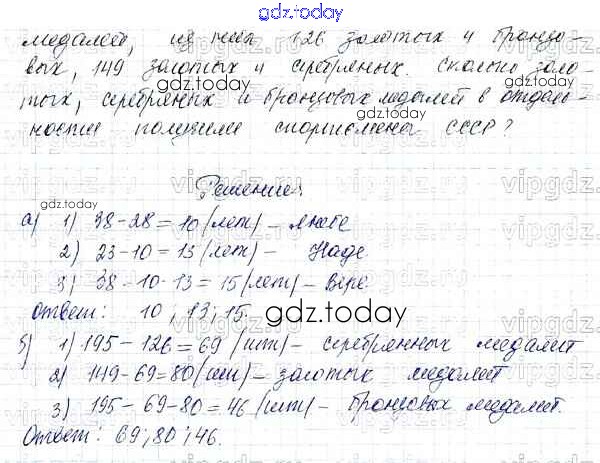 gdz.today
медалей, из них 126 золотых и бронзо-
вых, 149 золотых и серебряных. Сколько золо-
тых, серебряных и бронзовых медалей в отдель-
ности получили спортсмены СССР?
Решение:
а) 1) 38-28=10(лет)- Любе
2) 23-10=13(лет)- Наде
3) 38-10-13=15(лет)- Вере
Ответ: 10; 13; 15.
gdz.today
б) 1) 195-126=69(шт)- серебрянных медалей
2) 149-69=80(шт)- золотых медалей
3) 195-69-80=46(шт)- бронзовых медалей.
Ответ: 69; 80; 46.
gdz.today